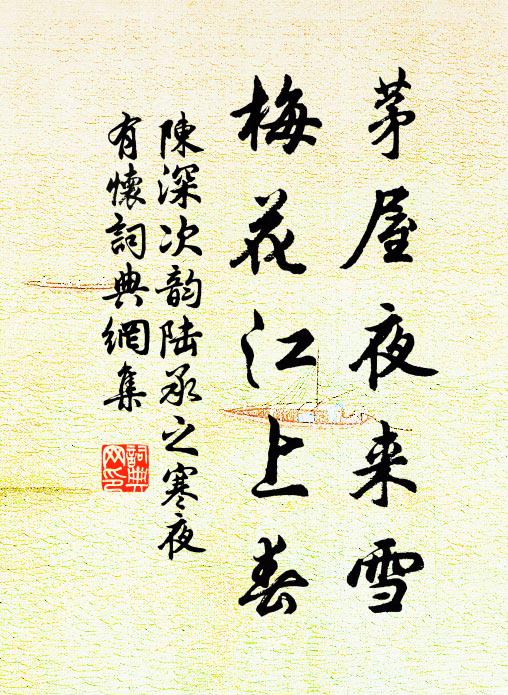 茅屋夜来雪
梅花江上春
陳深次韵陆承之寒夜
有懷詞典網集
詞典
网印